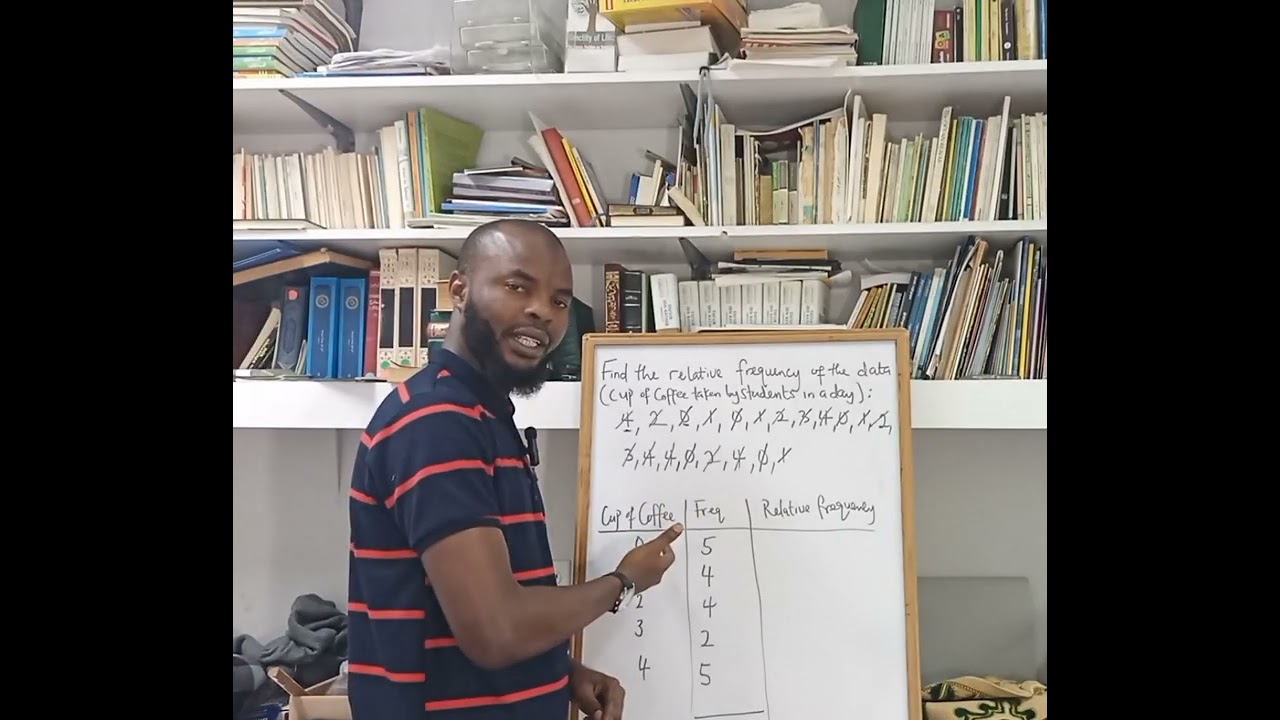 Find the relative frequency of the data
(Cup of Coffee taken by students in a day):
4, 2, 0, 1, 0, 1, 2, 3, 4, 0, 1, 2,
3, 4, 4, 0, 2, 4, 0, 1
Cup of Coffee Freq Relative frequency
0 5
4
2 4
3 2
4 5